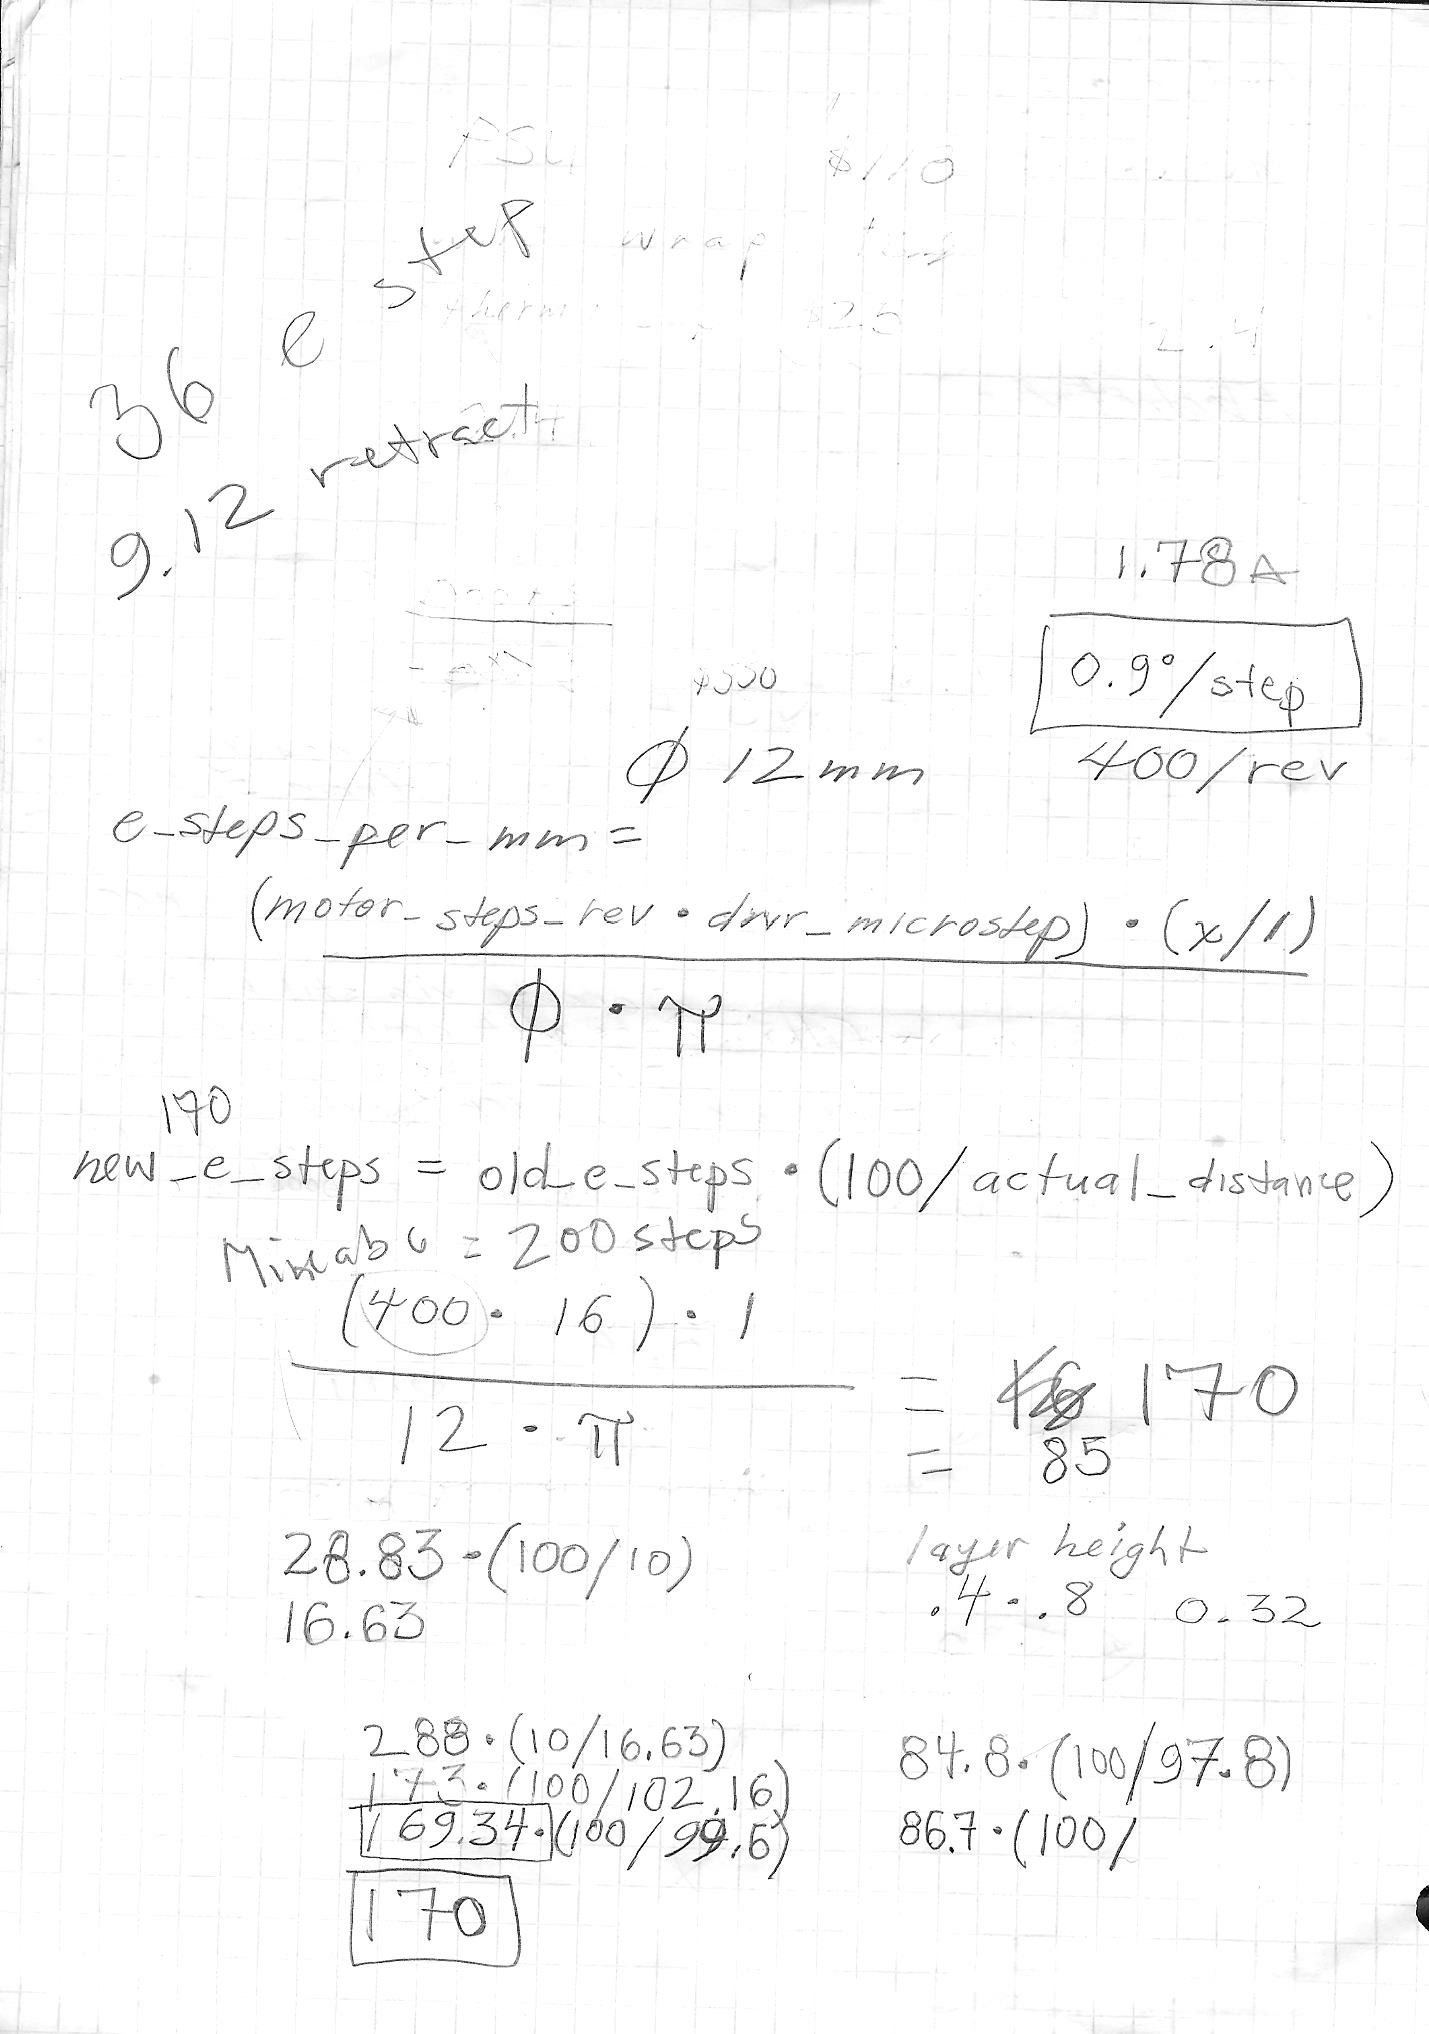 $110
wrap
therm
$25
2.4
36 e step
9.12 retract
1.78A
0.9°/step
400/rev
ϕ 12mm
e_steps_per_mm =
(motor_steps_rev · drvr_microstep) · (x/1)
ϕ · π
170
new_e_steps = old_e_steps · (100/actual_distance)
= 200 steps
(400 · 16) · 1
12 · π
= 170
= 85
28.83 · (100/10)
16.63
layer height
.4 - .8 0.32
288 · (10/16.63)
173 · (100/102.16)
169.34 · (100/99.6)
170
84.8 · (100/97.8)
86.7 · (100/